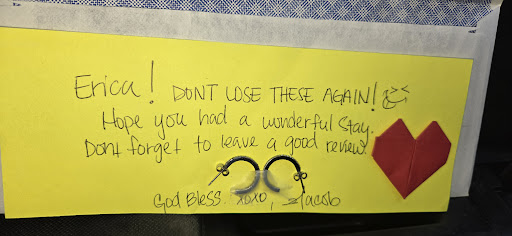 Erica! DONT LOSE THESE AGAIN!
Hope you had a wonderful stay.
Dont forget to leave a good review.
God Bless. xoxo, Jacob